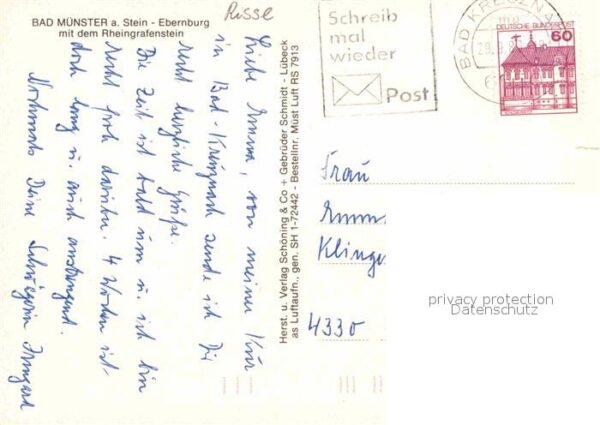 BAD MÜNSTER a. Stein - Ebernburg
mit dem Rheingrafenstein
Risse
Liebe Emma, von meiner Kur
in Bad-Kreuznach sende ich Dir
recht herzliche Grüße.
Die Zeit ist bald um u. ich bin
recht froh darüber. 4 Wochen ist
doch lang u. auch anstrengend.
Nochmals Deine Schwägerin Irmgard
Herst. u. Verlag Schöning & Co + Gebrüder Schmidt - Lübeck
as Luftaufn., gen. SH 1-72442 - Bestellnr. Müst Luft RS 7913
Schreib
mal
wieder
Post
BAD KREUZN
29.
DEUTSCHE BUNDESPOST
60
Frau
Emm
Klinge
4330
privacy protection
Datenschutz